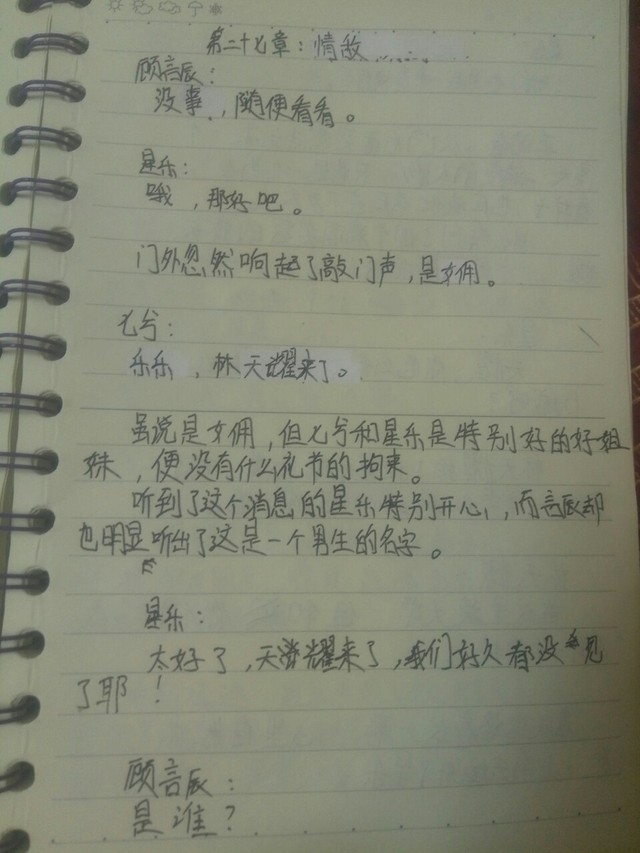 第二十七章：情敌
顾言辰：
没事，随便看看。
星乐：
哦，那好吧。
门外忽然响起了敲门声，是女佣。
七兮：
乐乐，林天耀来了。
虽说是女佣，但七兮和星乐是特别好的好姐
妹，便没有什么礼节的拘束。
听到了这个消息的星乐特别开心，而言辰却
也明显听出了这是一个男生的名字。
星乐：
太好了，天耀来了，我们好久都没见
了耶！
顾言辰：
是谁？